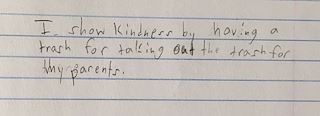 I show kindness by having a
trash for talking out the trash for
my parents.